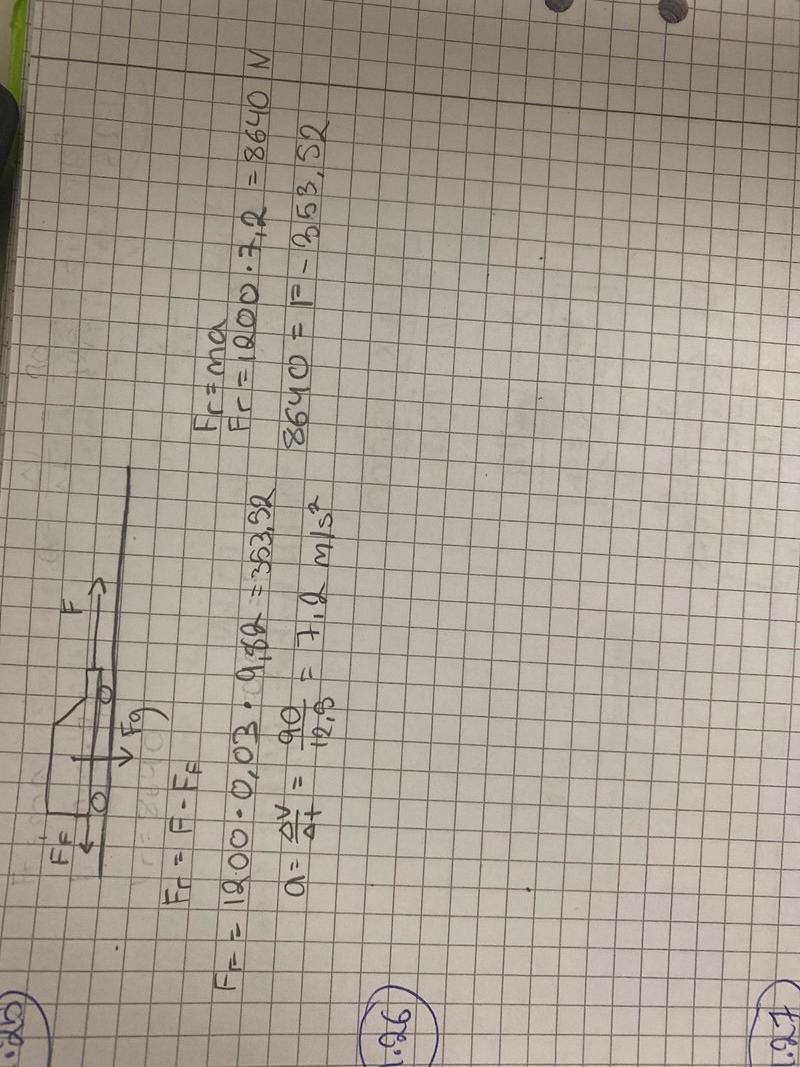 1.25
FF
F
Fg
Fr = F - FF
FF = 1200 · 0,03 · 9,82 = 353,52
a = ΔV/Δt = 90/12,5 = 7,2 m/s²
Fr = ma
Fr = 1200 · 7,2 = 8640 N
8640 = F - 353,52
1.26
1.27